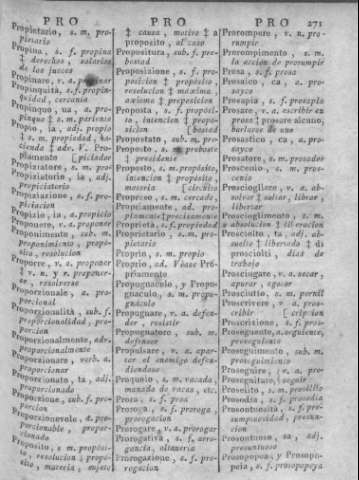 PRO PRO PRO 271
Propietario, s. m. pro-
pietario
Propina, s. f. propina
‡ derechos, salarios
de los jueces
Propinare, v. a. propinar
Propinquità, s. f. propin-
quidad, cercania
Propinquo, ua, a. pro-
pinquo ‡ s. m. pariente
Propio, ia, adj. propio
‡ s. m. propiedad, ha-
cienda ‡ adv. V. Pro-
piamente
Propiziatore, s. m. pro-
piciador
Propiziatorio, ia, adj.
propiciatorio
Propiziazione, s. f. pro-
piciacion
Propizio, ia, a. propicio
Proponere, v. a. proponer
Proponimento, sub. m.
Proponimiento, propó-
sito, resolucion
Proporre, v. a. proponer
‡ v. n. y r. proponer-
se, resolverse
Proporzionale, a. pro-
porcional
Proporzionalità, sub. f.
Proporcionalidad, pro-
porcion
Proporzionalmente, adv.
Proporcionalmente
Proporzionare, verb. a.
proporcionar
Proporzionato, ta, adj.
proporcionado
Proporzione, sub. f. pro-
porcion
Proporzionevole, a. pro-
porcionable, propor-
cionado
Proposito, s. m. propósi-
to, resolucion ‡ propó-
sito, materia, sujeto
‡ causa, motivo ‡ a
proposito, al caso
Propositura, sub. f. pre-
bostad
Proposizione, s. f. pro-
posicion ‡ propósito,
resolucion ‡ maxima,
axioma ‡ preposicion
Proposta, s. f. propósi-
to, intencion ‡ propo-
sicion
Propostato, sub. m. pre-
bostad
Proposto, s. m. preboste
‡ presidente
Proposto, s. m. propósito,
intencion ‡ propósito,
materia
Propreso, s. m. cercado, circuito
Propriamente, ad. pro-
piamente ‡ precisamente
Proprietà, s. f. propiedad
Proprietario, s. m. pro-
pietario
Proprio, s. m. propio
Proprio, ad. Véase Pro-
priamente
Propugnacolo, y Propu-
gnaculo, s. m. propu-
gnaculo
Propugnare, v. a. defen-
der, resistir
Propugnatore, sub. m.
defensor
Propulsare, v. a. apar-
tar el enemigo defen-
diendose
Proquoio, s. m. vacada,
manada de vacas, etc.
Prora, s. f. proa
Proroga, s. f. proroga,
prorogacion
Prorogare, v. a. prorogar
Prorogativa, s. f. arro-
gancia, altaneria
Prorogazione, s. f. pro-
rogacion
Prorompere, v. n. pro-
rumpir
Prorompimento, s. m.
la accion de prorumpir
Prosa, s. f. prosa
Prosaico, ca, a. pro-
sayco
Prosapia, s. f. prosapia
Prosare, v. a. escribir en
prosa ‡ prosare alcuno,
burlarse de uno
Prosastico, ca, a. pro-
sayco
Prosatore, s. m. prosador
Proscenio, a. m. pros-
cenio
Prosciogliere, v. a. ab-
solver ‡ soltar, librar,
libertar
Proscioglimento, s. m.
absolucion ‡ liberacion
Prosciolto, ta, adj. ab-
suelto ‡ libertado ‡ di
prosciolti, dias de
trabajo
Prosciugare, v. a. secar,
apurar, agotar
Prosciutto, s. m. pernil
Proscrivere, v. a. pros-
cribir
Proscrizione, s. f. pros-cripcion
Proseguente, a. siguiente,
prosiguiente
Proseguimento, sub. m.
proseguimiento
Proseguire, v. a. pro-
seguir, seguir
Proselito, s. m. proselito
Prosodia, s. f. prosodia
Prosontuosità, s. f. pre-
sumptuosidad, presun-
cion
Prosontuoso, sa, adj.
presuntuoso
Prosopopea, y Prosopo-
peia, s. f. prosopopeya